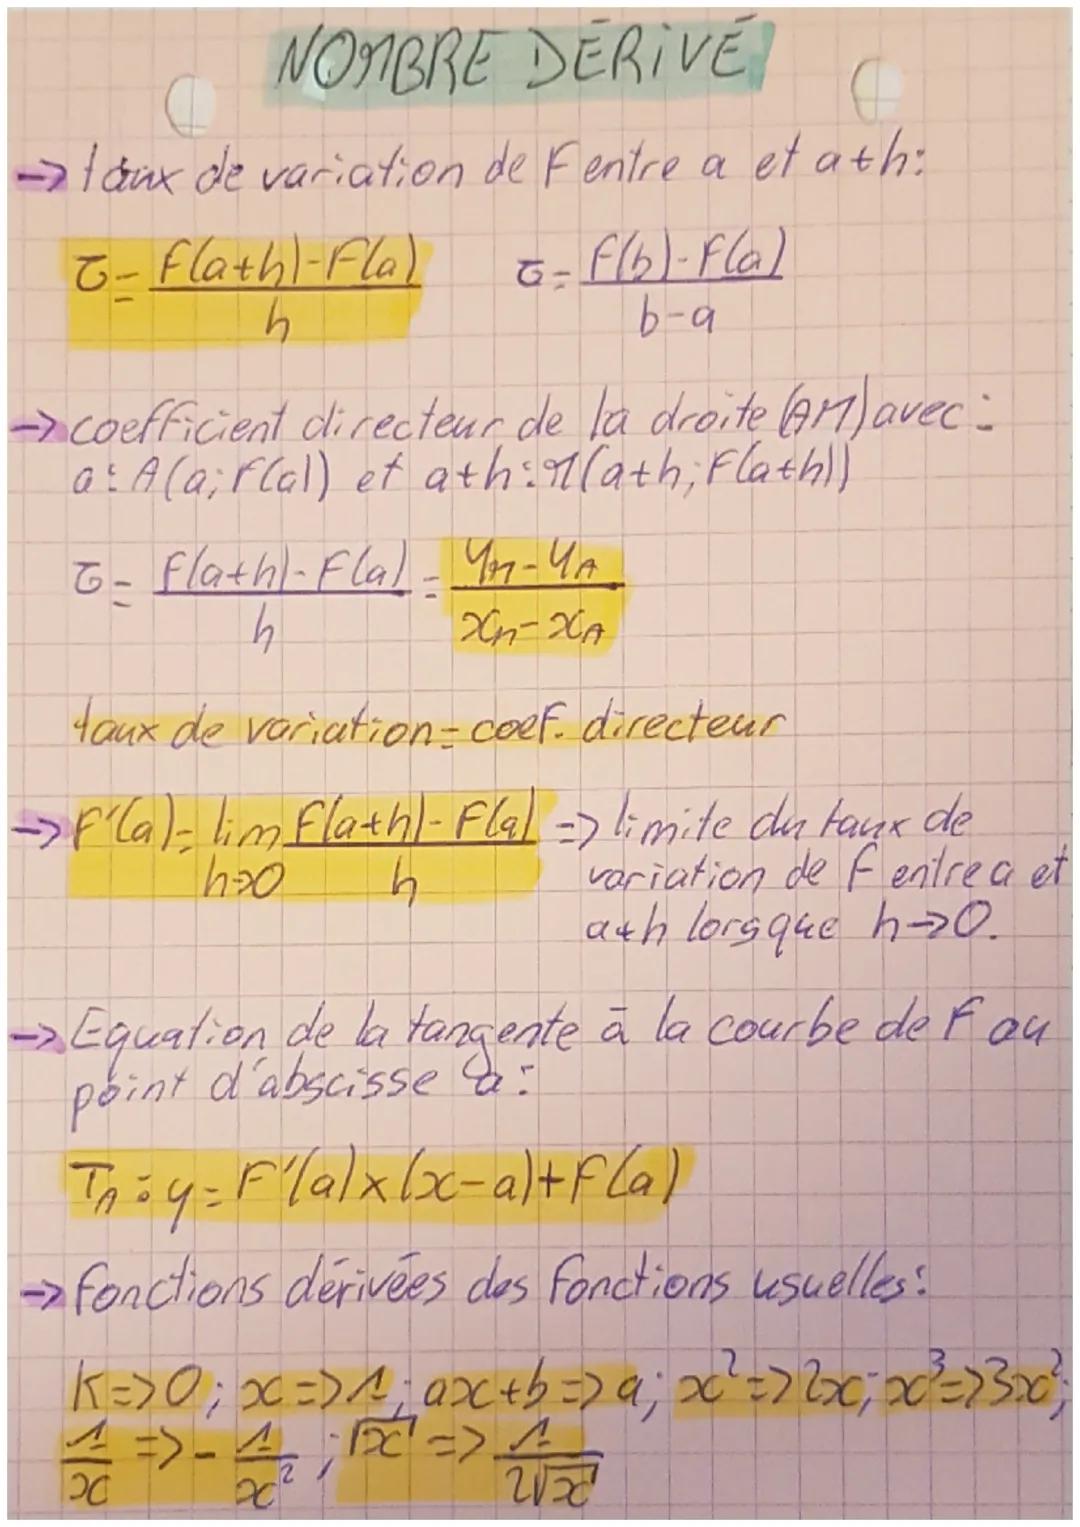 NOMBRE DÉRIVÉ
-> taux de variation de F entre a et a+h:
τ = F(a+h)-F(a) / h    τ = F(b)-F(a) / b-a
-> coefficient directeur de la droite (AM) avec:
a: A(a; F(a)) et a+h: M(a+h; F(a+h))
τ = F(a+h)-F(a) / h = yM-yA / xM-xA
taux de variation = coef. directeur
-> F'(a) = lim h->0 F(a+h)-F(a) / h => limite du taux de
variation de F entre a et
a+h lorsque h->0.
-> Equation de la tangente à la courbe de F au
point d'abscisse a:
TA: y = F'(a)×(x-a)+F(a)
-> Fonctions dérivées des fonctions usuelles:
K=>0; x=>1; ax+b=>a; x²=>2x; x³=>3x²;
1/x => -1/x²; √x => 1/2√x